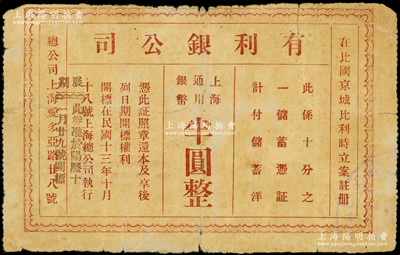 有利銀公司
在比國京城比利時立案註冊
此係十分之
一儲蓄憑証
計付儲蓄洋
上海
通用
銀幣
半圓整
憑此証照章還本及享後
列日期開標權利
開標在民國十三年十月
十八號上海總公司執行
展期
此券准於陽曆十
一月廿九號開標
總公司上海愛多亞路廿八號
上海陽明拍賣
www.shymauction.com